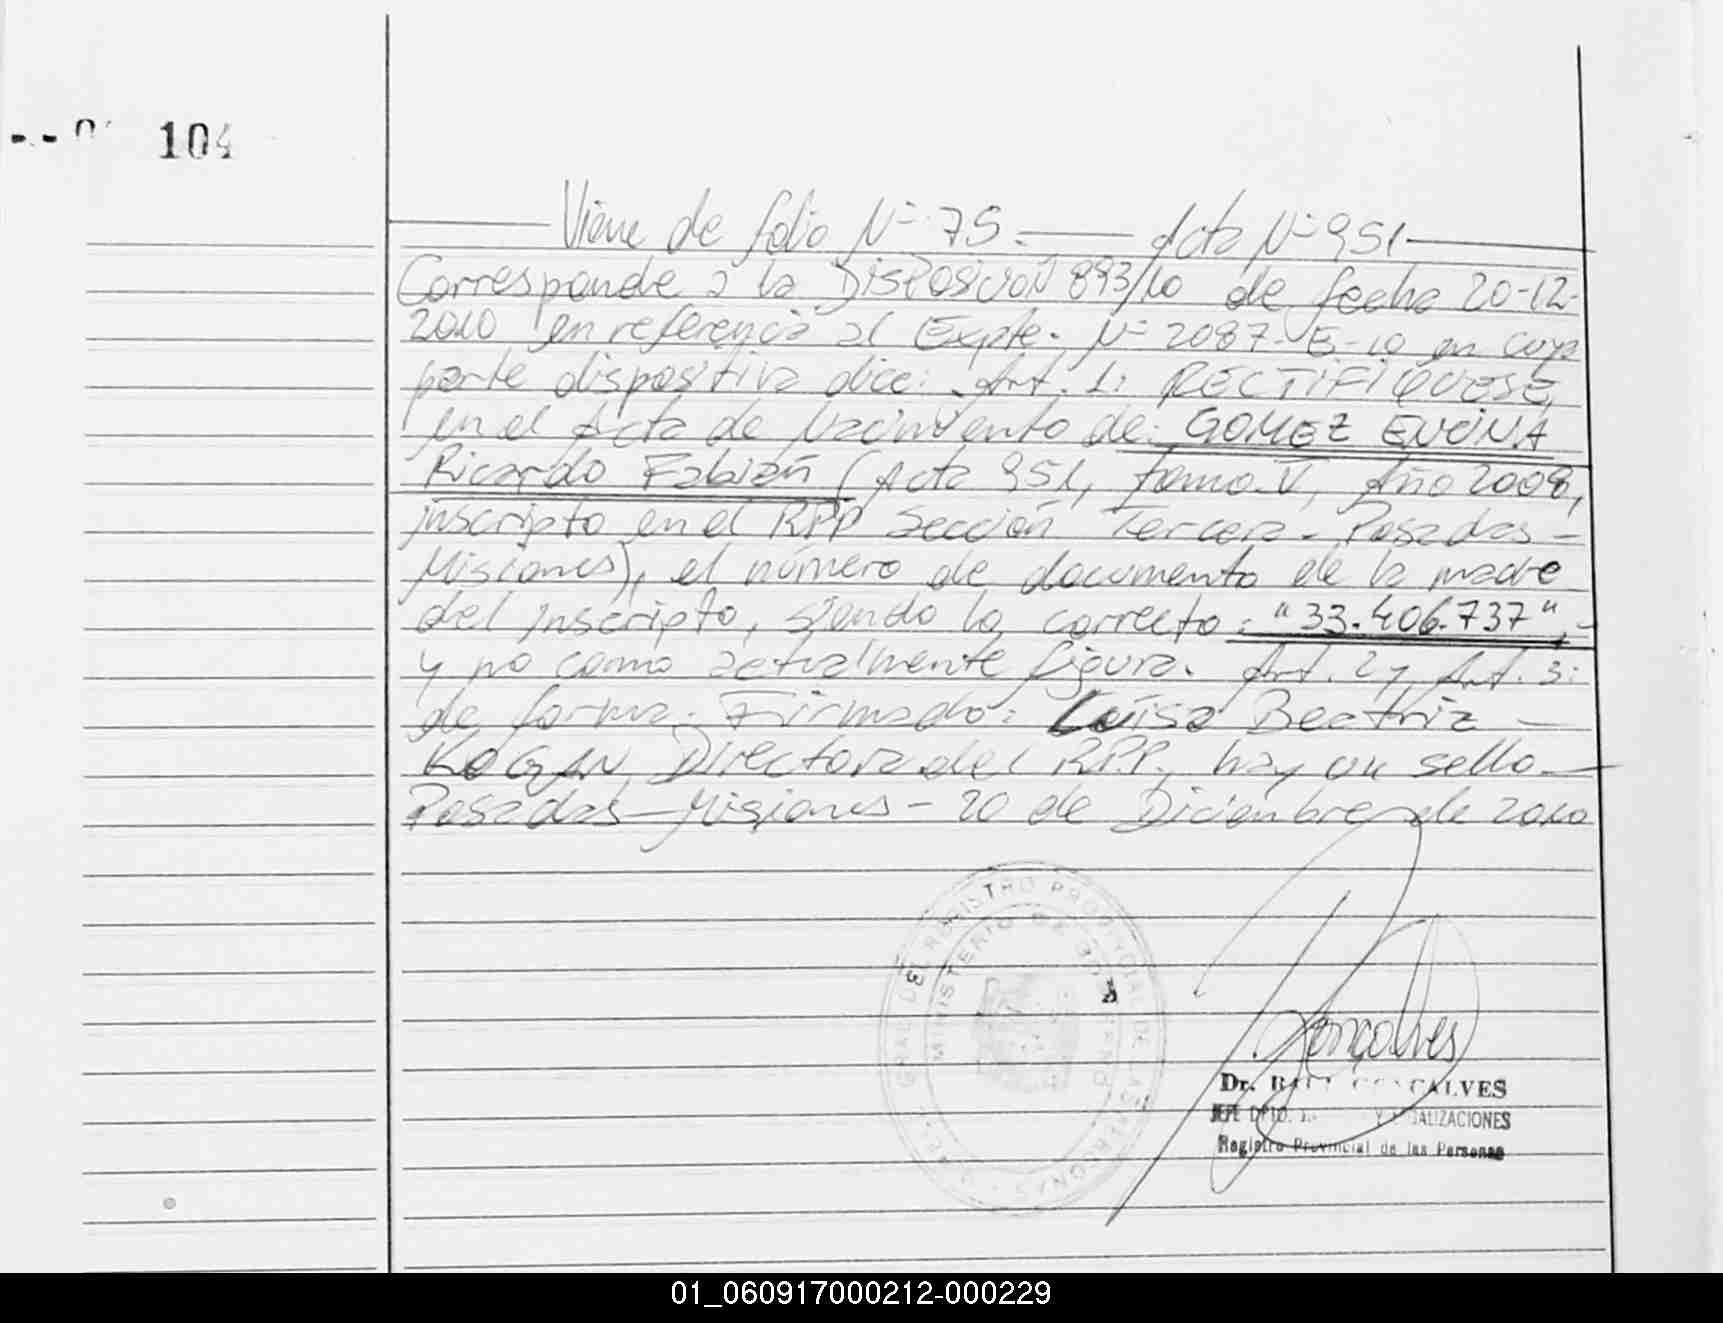 104
Viene de folio Nº 75. Acta Nº 951
Corresponde a la DISPOSICIÓN 893/10 de fecha 20-12-
2010 en referencia al Expte. Nº 2087-E-10 en cuya
parte dispositiva dice: Art. 1: RECTIFIQUESE,
en el Acta de Nacimiento de: GOMEZ ENCINA
Ricardo Fabián (Acta 951, tomo V, Año 2008,
inscripto en el RPP Sección Tercera - Posadas -
Misiones), el número de documento de la madre
del inscripto, siendo lo correcto: "33.406.737",-
y no como actualmente figura. Art. 2 y Art. 3:
de forma. Firmado: Luisa Beatriz
KOGAN, Directora del R.P.P., hay un sello
Posadas - Misiones - 20 de Diciembre de 2010
GRAL DEL REGISTRO PROVINCIAL DE LAS PERSONAS
MINISTERIO DE GOBIERNO
Gonçalves
Dr. GONÇALVES
JEFE DPTO. Y LEGALIZACIONES
Registro Provincial de las Personas
01_060917000212-000229